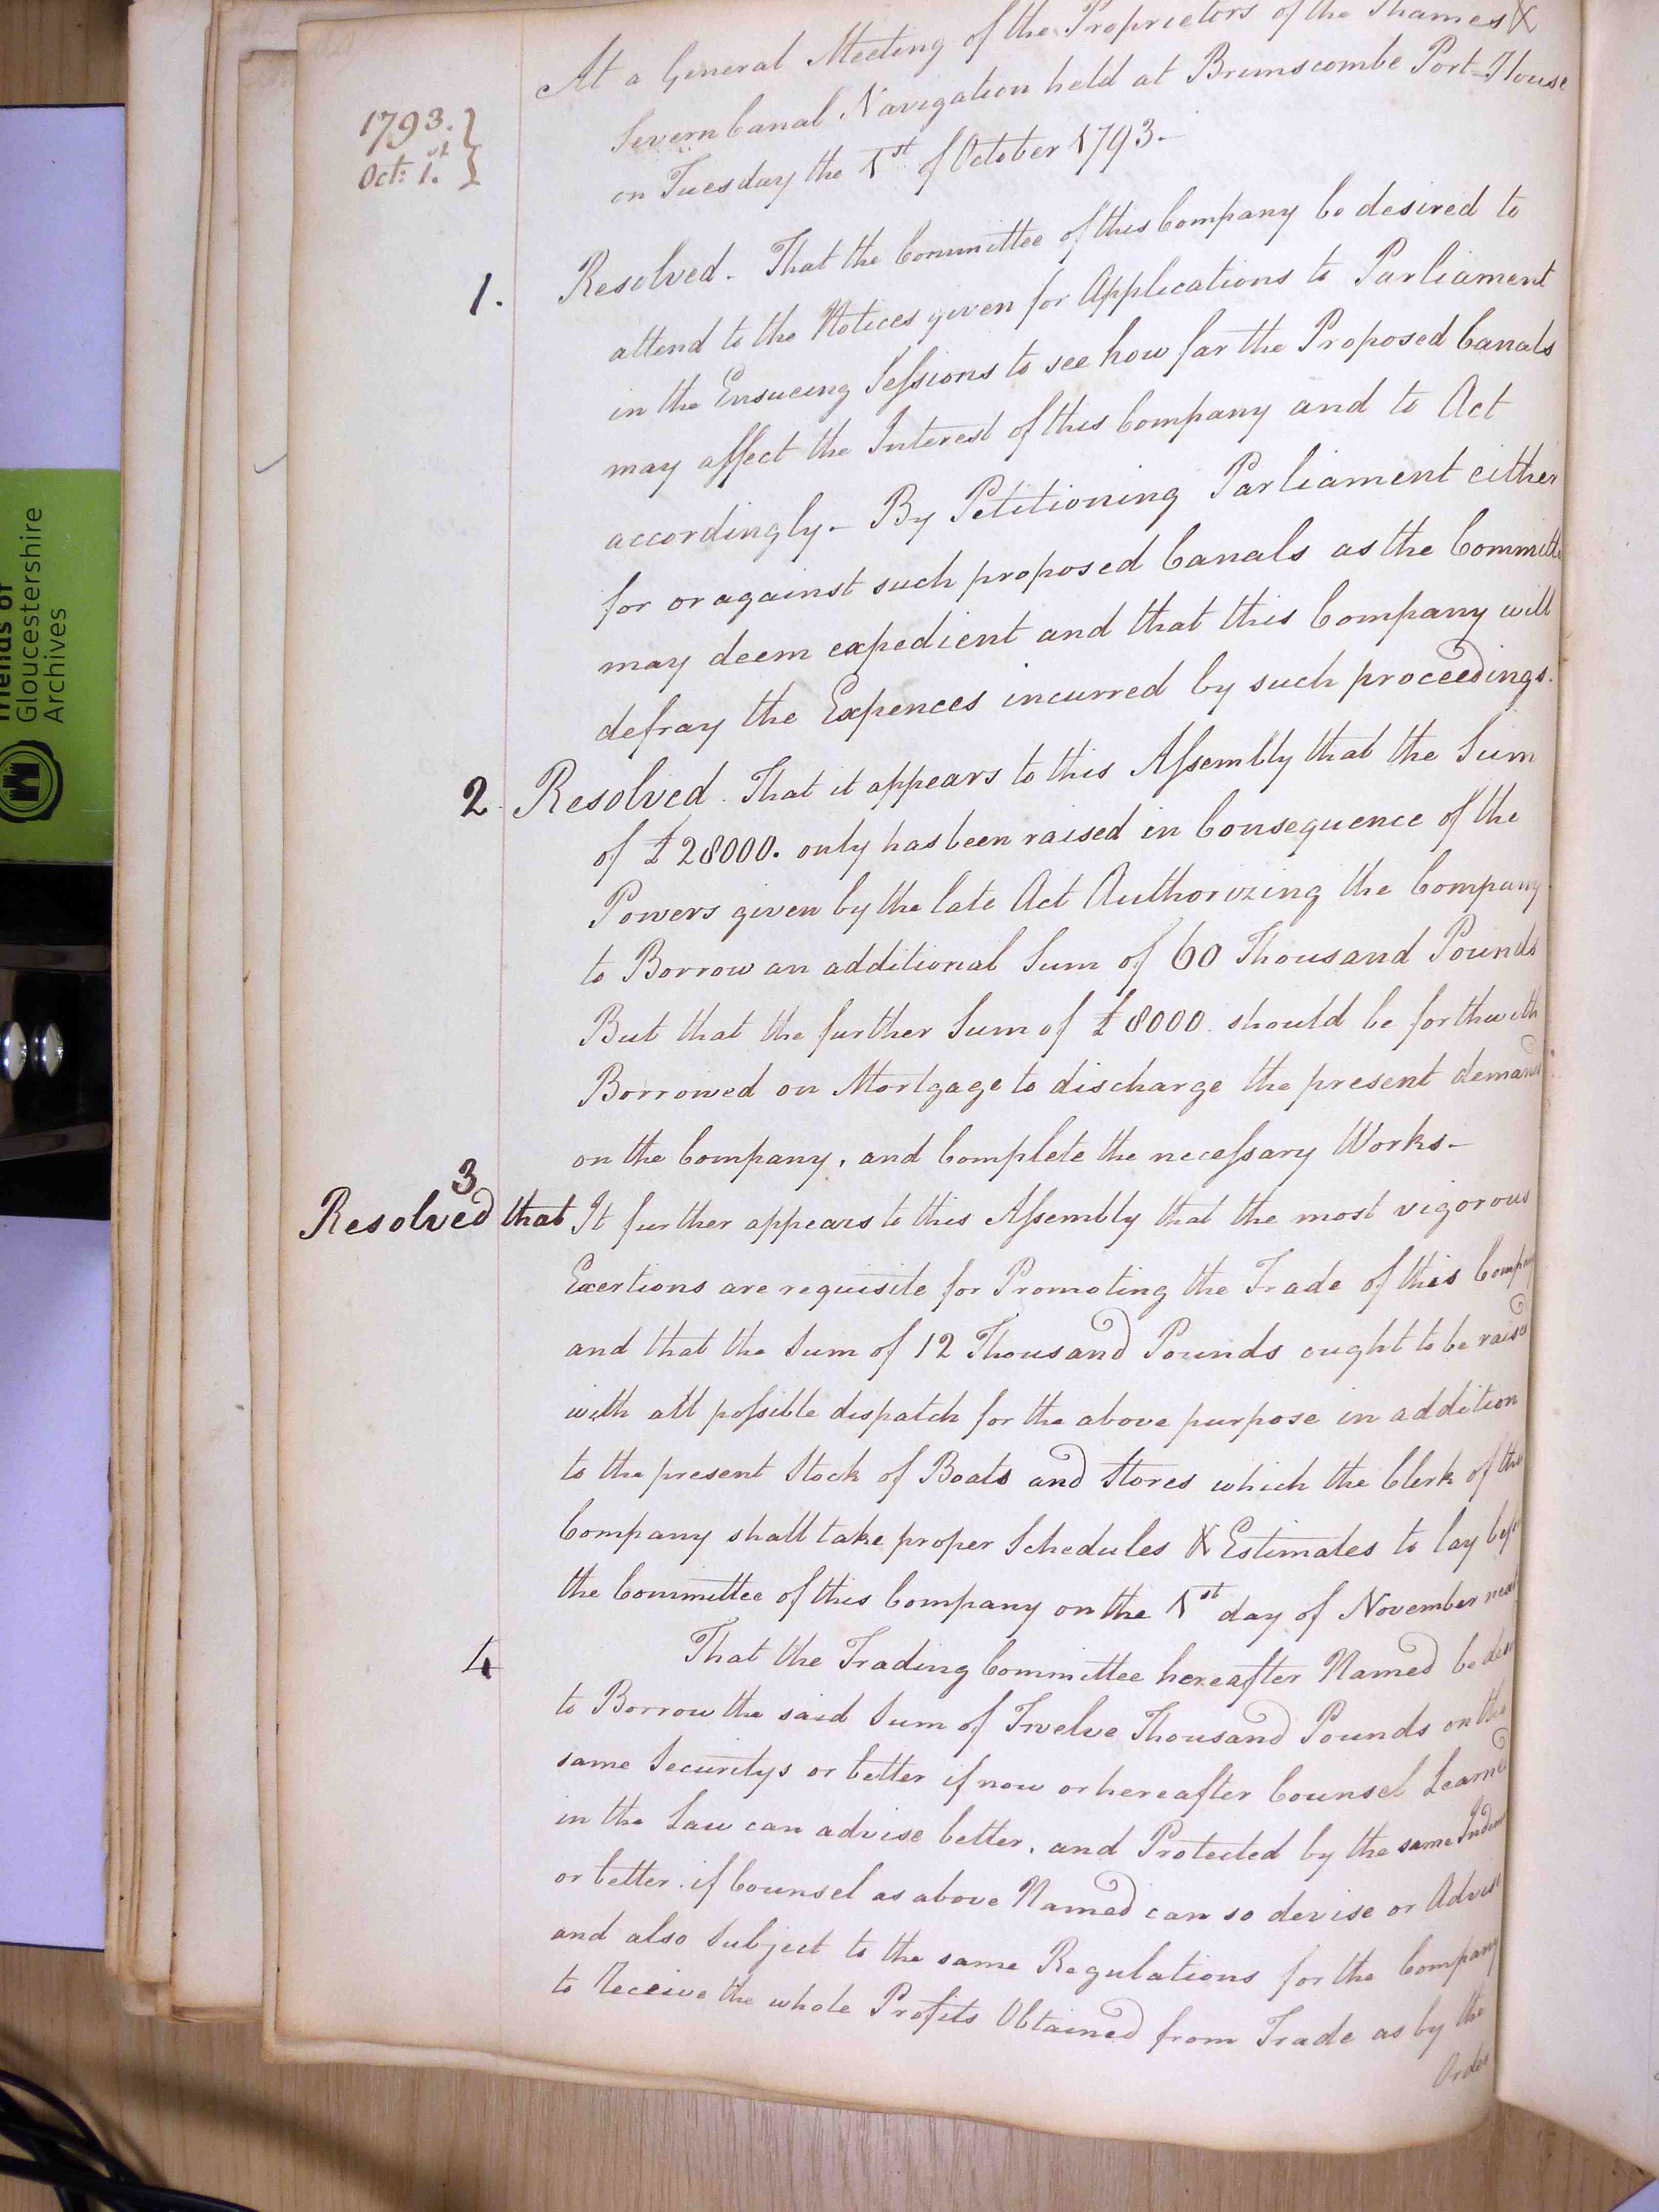 At a General Meeting of the Proprietors of the Thames &
Severn Canal Navigation held at Brimscombe Port-House
on Tuesday the 1st of October 1793.-
1793.
Oct: 1.st
1. Resolved - That the Committee of this Company be desired to
attend to the Notices given for Applications to Parliament
in the Ensueing Sessions to see how far the Proposed Canals
may affect the Interest of this Company and to Act
accordingly - By Petitioning Parliament either
for or against such proposed Canals as the Committe
may deem expedient and that this Company will
defray the Expences incurred by such proceedings.
2 Resolved. That it appears to this Assembly that the Sum
of £28000. only has been raised in Consequence of the
Powers given by the late Act Authorizing the Company
to Borrow an additional Sum of 60 Thousand Pounds
But that the further Sum of £8000. should be forthwith
Borrowed on Mortgage to discharge the present demand
on the Company, and Complete the necessary Works-
3
Resolved that It further appears to this Assembly that the most vigorous
Exertions are requisite for Promoting the Trade of this Company
and that the Sum of 12 Thousand Pounds ought to be raised
with all possible dispatch for the above purpose in addition
to the present Stock of Boats and Stores which the Clerk of the
Company shall take proper Schedules & Estimates to lay bef
the Committee of this Company on the 1st day of November next
4 That the Trading Committee hereafter Named be des
to Borrow the said Sum of Twelve Thousand Pounds on the
same Securitys or better if now or hereafter Counsel Learned
in the Law can advise better, and Protected by the same Indem
or better. if Counsel as above Named can so devise or Advise
and also Subject to the same Regulations for the Company
to Receive the whole Profits Obtained from Trade as by the
Order
Friends of
Gloucestershire
Archives